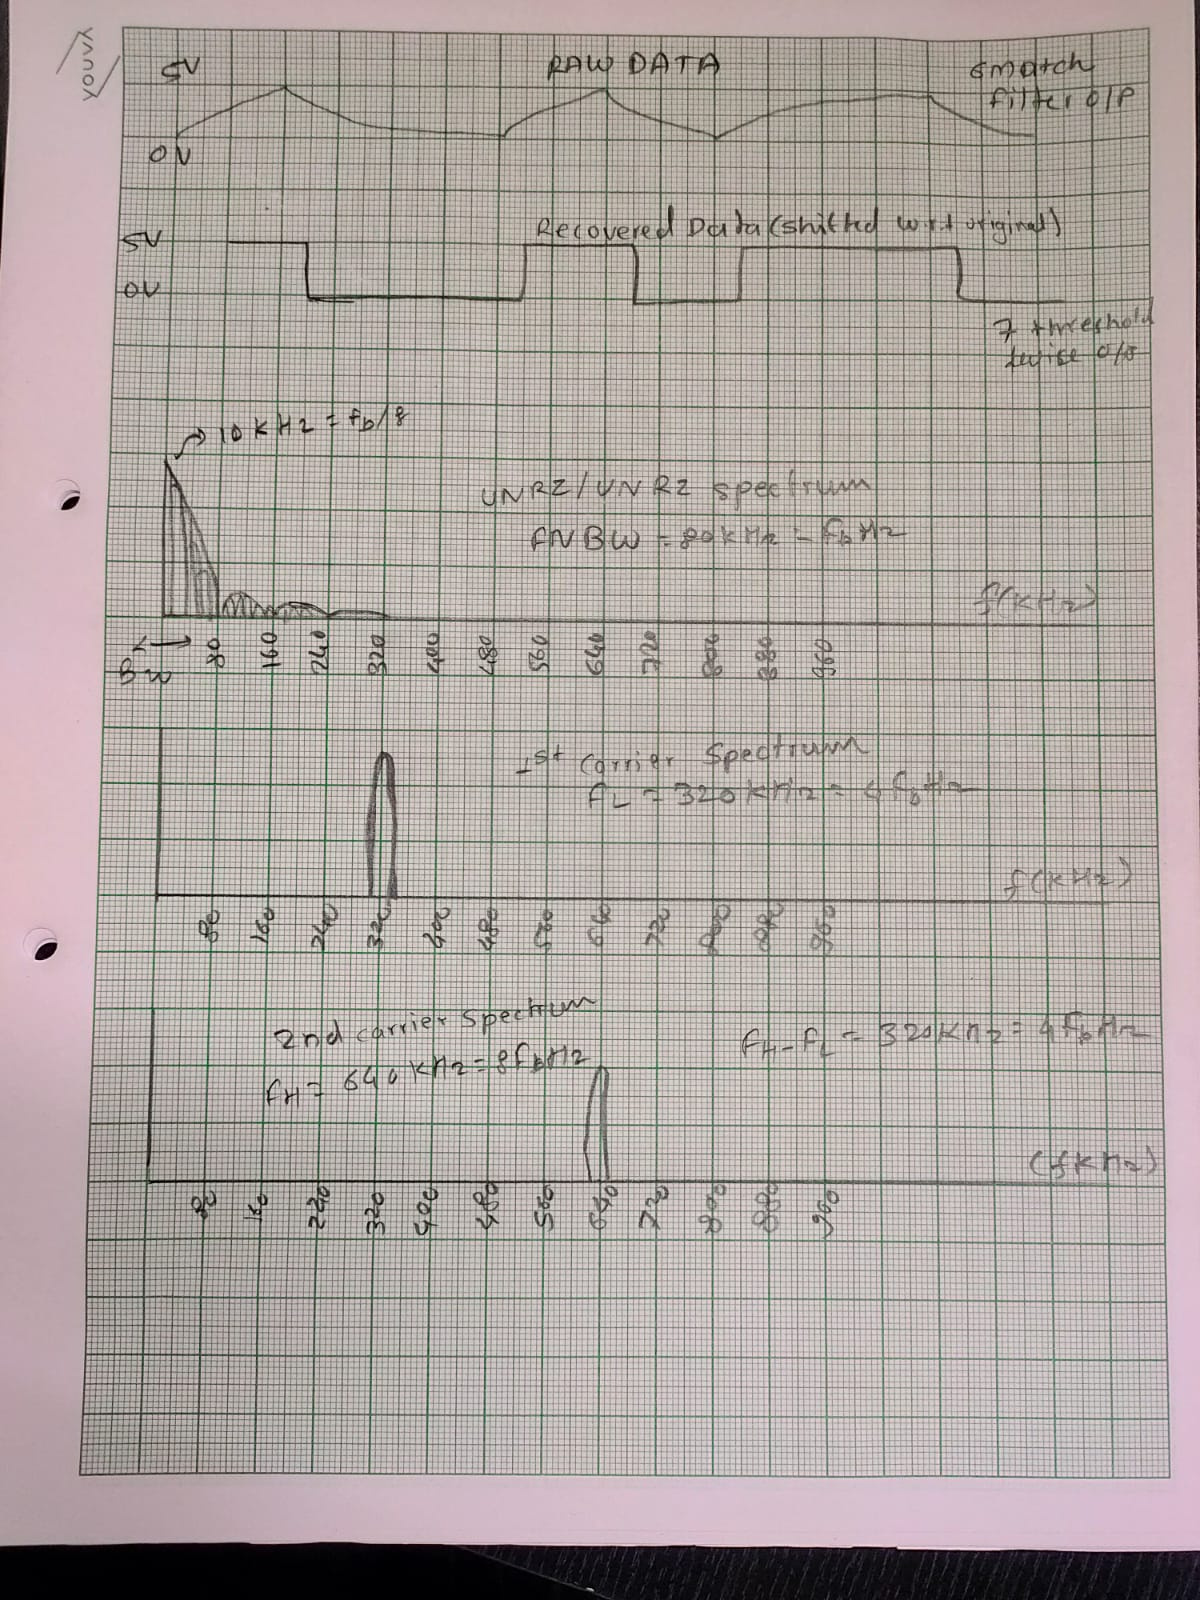 5V RAW DATA 6 match
filter O/P
0V
Recovered Data (shifted w.r.t original)
5V
0V
7 threshold
O/P
10 kHz = fb/8
UNRZ/UNRZ spectrum
FNBW = 80 kHz = fb Hz
f(kHz)
80 160 240 320 400 480 560 640 720 800 880 960
1st carrier spectrum
FL = 320 kHz = 4fb Hz
f(kHz)
80 160 240 320 400 480 560 640 720 800 880 960
2nd carrier spectrum
FH = 640 kHz = 8fb Hz
FH - FL = 320 kHz = 4fb Hz
(fkHz)
80 160 240 320 400 480 560 640 720 800 880 960
youva